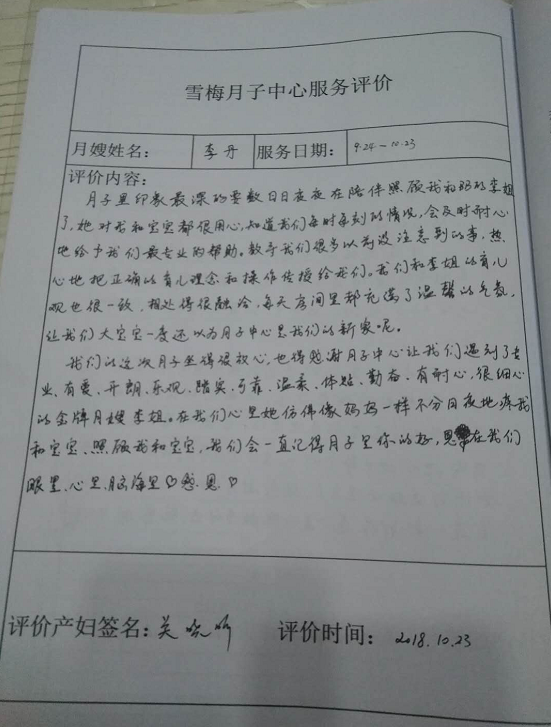 雪梅月子中心服务评价
月嫂姓名： 李丹 服务日期： 9.24-10.23
评价内容：
月子里印象最深的要数日日夜夜在陪伴照顾我和BB的李姐
了，她对我和宝宝都很用心，知道我们每时每刻的情况，会及时耐心
地给予我们最专业的帮助。教予我们很多以前没注意到的事，热
心地把正确的育儿理念和操作传授给我们。我们和李姐的育儿
观也很一致，相处得很融洽，每天房间里都充满了温馨的气氛，
让我们大宝宝一度还以为月子中心是我们的新家呢。
我们的这次月子坐得很放心，也得感谢月子中心让我们遇到了专
业、有爱、开朗、乐观、踏实、可靠、温柔、体贴、勤奋、有耐心，很细心
的金牌月嫂李姐。在我们心里她仿佛像妈妈一样不分日夜地疼我
和宝宝、照顾我和宝宝，我们会一直记得月子里你的好，恩在我们
眼里、心里、脑海里♡感恩♡
评价产妇签名： 关晓 评价时间： 2018.10.23